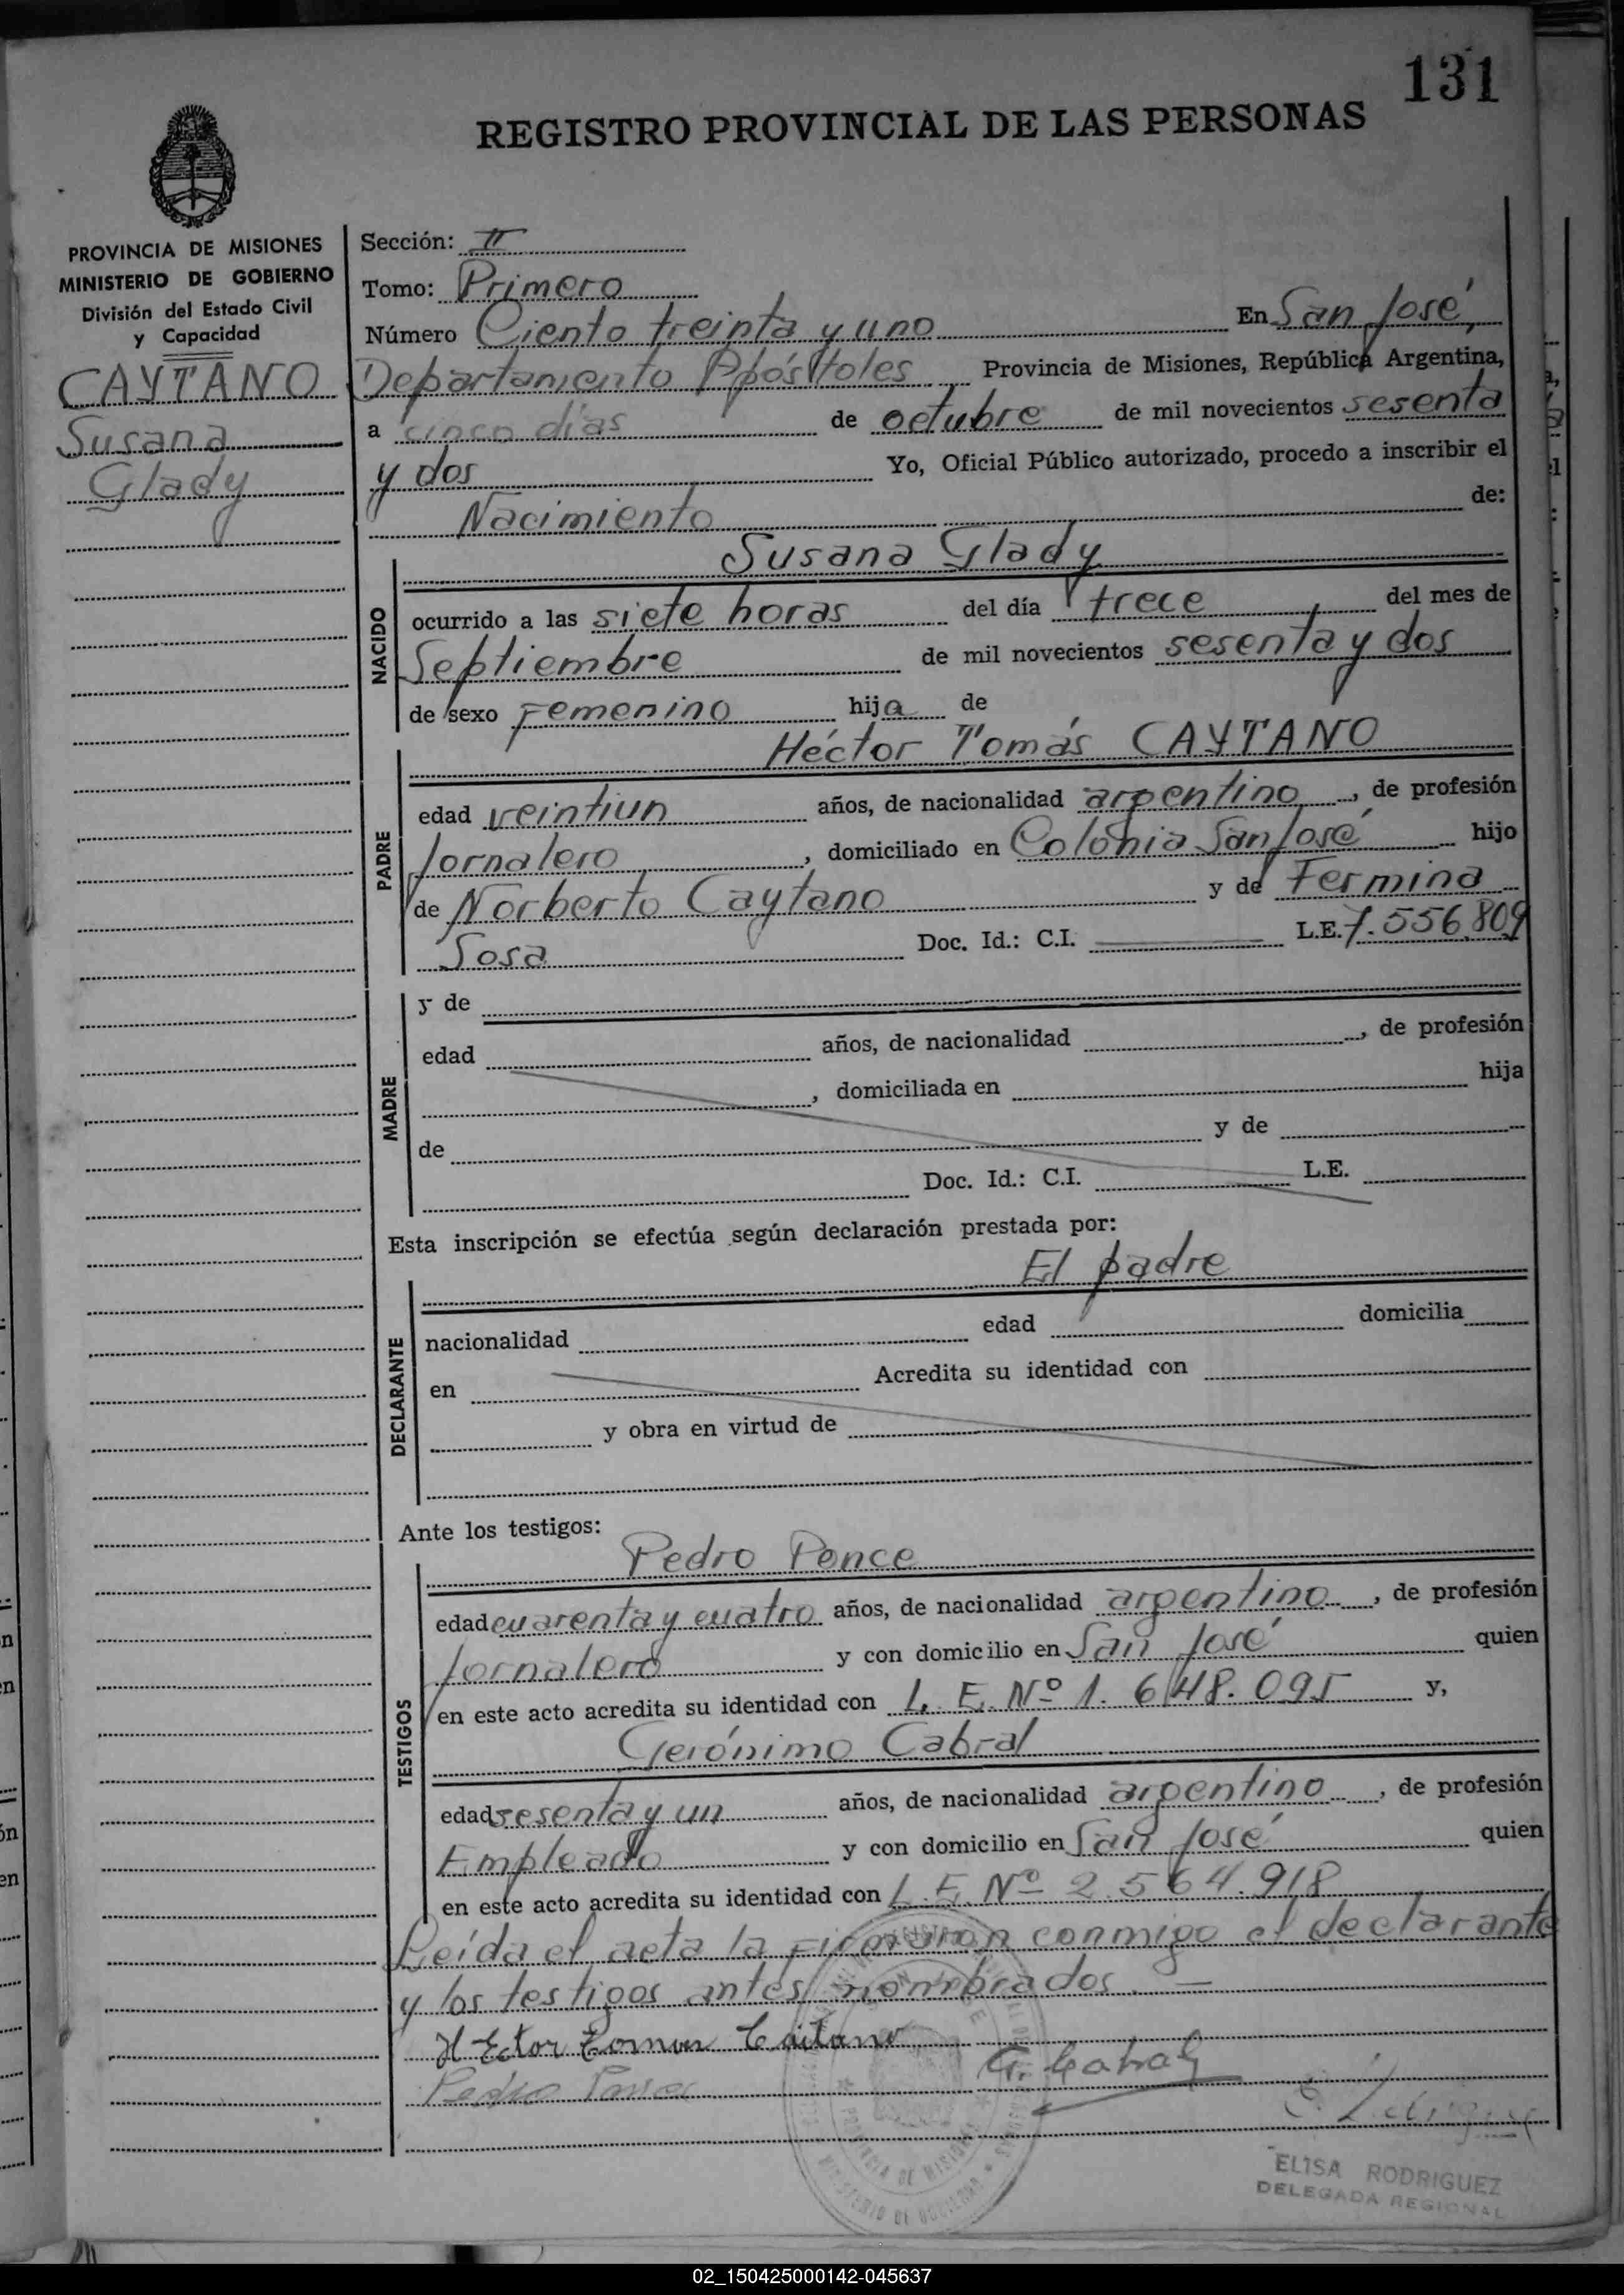 131
REGISTRO PROVINCIAL DE LAS PERSONAS
PROVINCIA DE MISIONES
MINISTERIO DE GOBIERNO
División del Estado Civil
y Capacidad
CAYTANO
Susana
Glady
Sección: II
Tomo: Primero
Número Ciento treinta y uno En San José,
Departamento Apóstoles Provincia de Misiones, República Argentina,
a cinco días de octubre de mil novecientos sesenta
y dos Yo, Oficial Público autorizado, procedo a inscribir el
Nacimiento de:
Susana Glady
NACIDO
ocurrido a las siete horas del día trece del mes de
Septiembre de mil novecientos sesenta y dos
de sexo Femenino hija de
Héctor Tomás CAYTANO
PADRE
edad veintiun años, de nacionalidad argentino, de profesión
Jornalero, domiciliado en Colonia San José hijo
de Norberto Caytano y de Fermina
Sosa Doc. Id.: C.I. L.E. 7.556.809
MADRE
y de
edad años, de nacionalidad , de profesión
, domiciliada en hija
de y de
Doc. Id.: C.I. L.E.
Esta inscripción se efectúa según declaración prestada por:
El padre
DECLARANTE
nacionalidad edad domicilia
en Acredita su identidad con
y obra en virtud de
Ante los testigos:
Pedro Ponce
TESTIGOS
edad cuarenta y cuatro años, de nacionalidad argentino, de profesión
Jornalero y con domicilio en San José quien
en este acto acredita su identidad con L. E. Nº 1.648.095 y,
Gerónimo Cabral
edad sesenta y un años, de nacionalidad argentino, de profesión
Empleado y con domicilio en San José quien
en este acto acredita su identidad con L.E. Nº 2.564.918
Leída el acta la firmaron conmigo el declarante
y los testigos antes nombrados. =
HEctor Tomas Caitano
Pedro Ponce
G. Cabral
ELISA RODRIGUEZ
DELEGADA REGIONAL
PROVINCIA DE MISIONES
MINISTERIO DE GOBIERNO
02_150425000142-045637